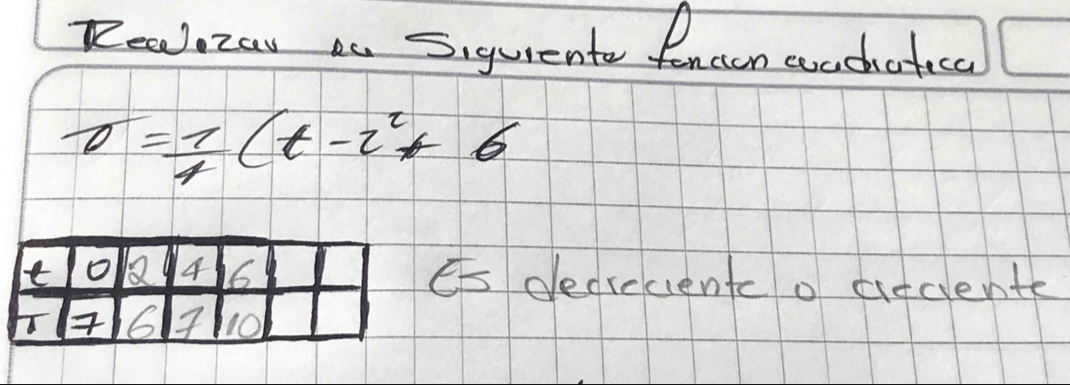 Realizar la siguiente función cuadratica
T = 1/4 (t - 2² + 6
t 0 2 4 6
T 7 6 7 10
Es decreciente o creciente